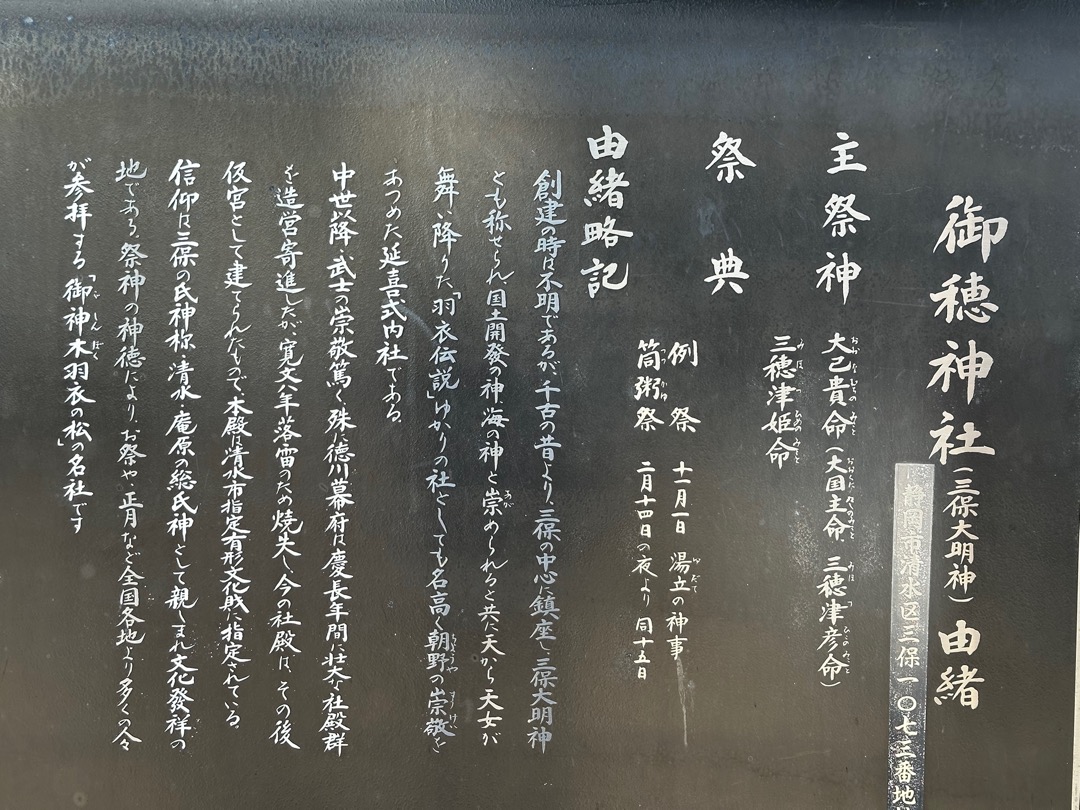 御穂神社（三保大明神）由緒
静岡市清水区三保一〇七三番地
主祭神
大己貴命（大国主命 三穂津彦命）
三穂津姫命
祭典
例祭 十一月一日 湯立の神事
筒粥祭 二月十四日の夜より同十五日
由緒略記
創建の時は不明であるが、千古の昔より、三保の中心に鎮座し、三保大明神
とも称せられ、国土開發の神、海の神と崇められると共に、天から天女が
舞い降りた「羽衣伝説」ゆかりの社としても名高く、朝野の崇敬を
あつめた延喜式内社である。
中世以降、武士の崇敬篤く、殊に徳川幕府は慶長年間に壮大な社殿群
を造営寄進したが、寛文八年落雷のため焼失し、今の社殿は、その後
仮宮として建てられたもので、本殿は清水市指定有形文化財に指定されている。
信仰は三保の氏神様、清水・庵原の総氏神として親しまれ、文化發祥の
地である。祭神の神徳により、お祭や、正月など全国各地より多くの人々
が参拝する「御神木羽衣の松」の名社です